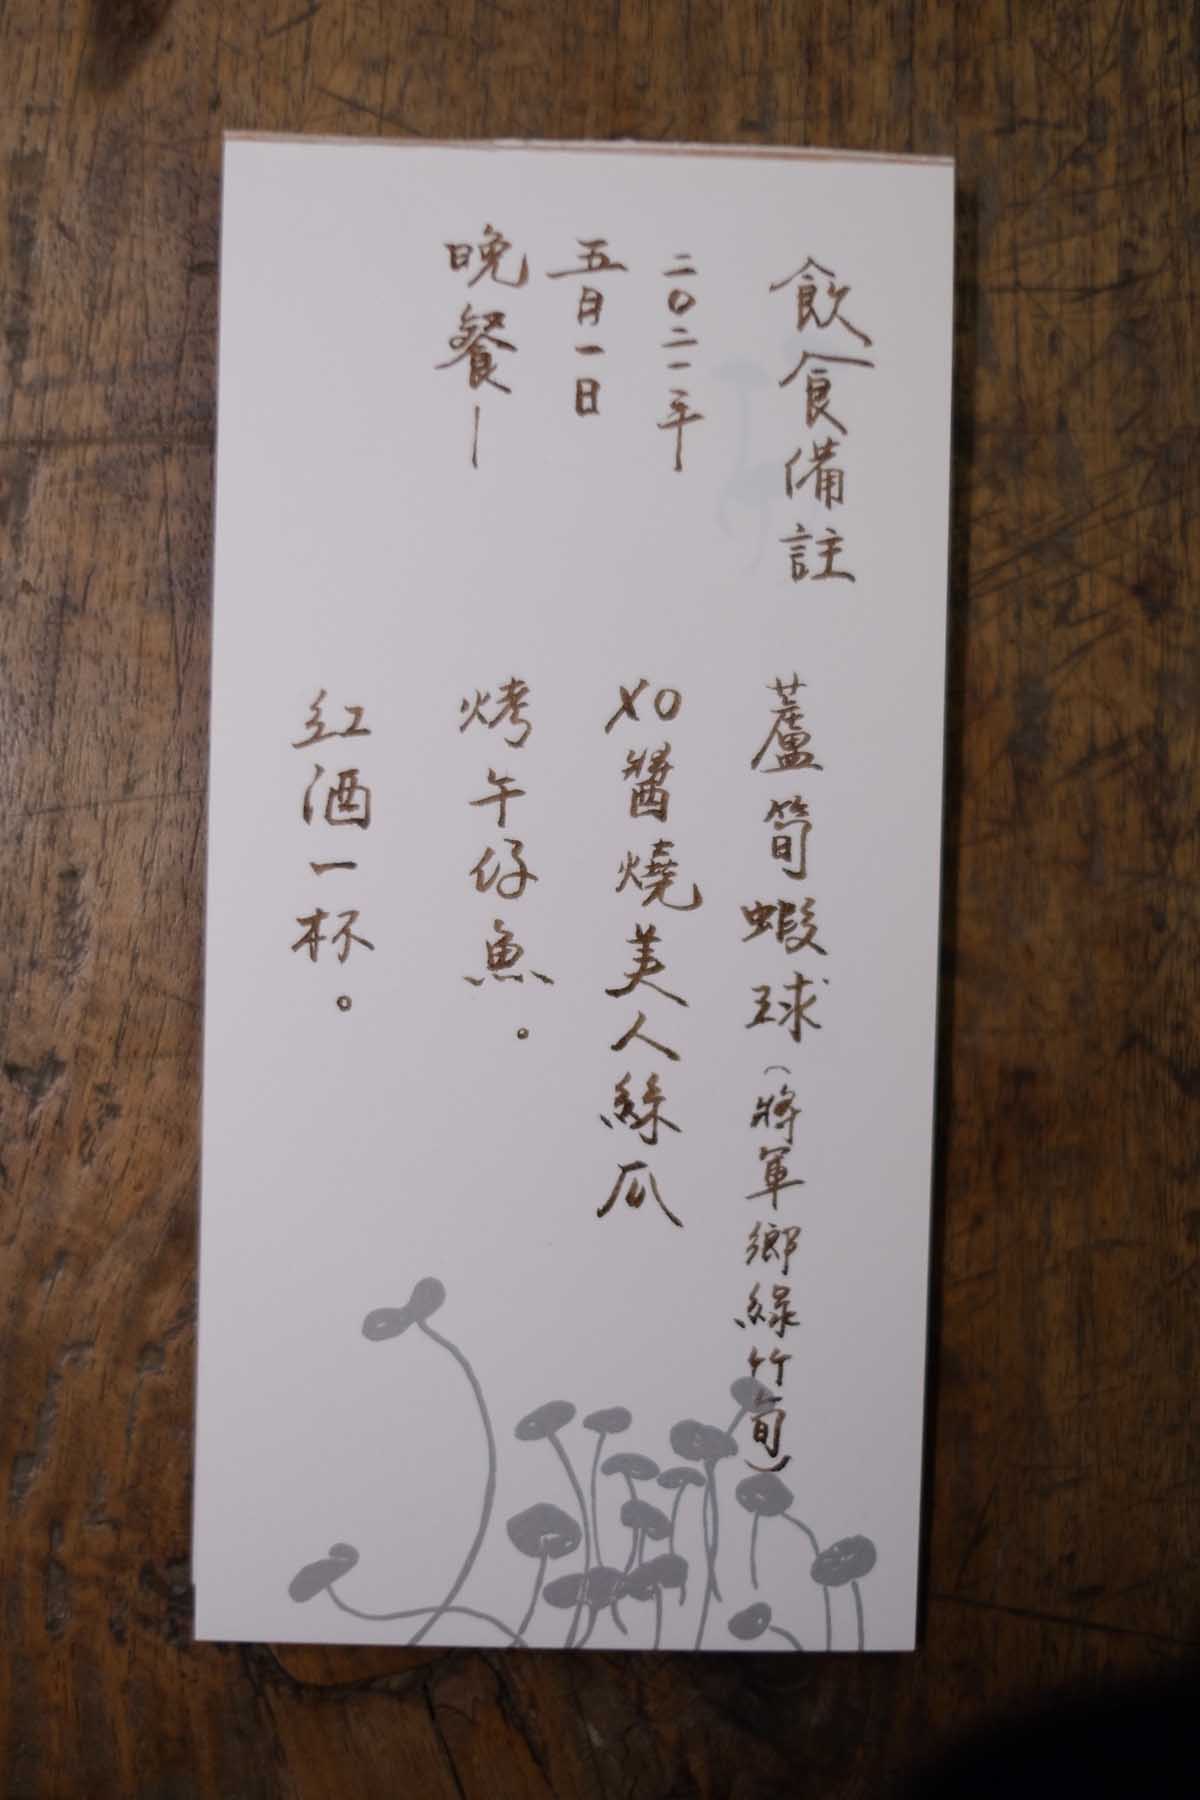 飲食備註
二〇二一年
五月一日
晚餐—
蘆筍蝦球（將軍鄉綠竹旬）
XO醬燒美人絲瓜
烤午仔魚。
紅酒一杯。